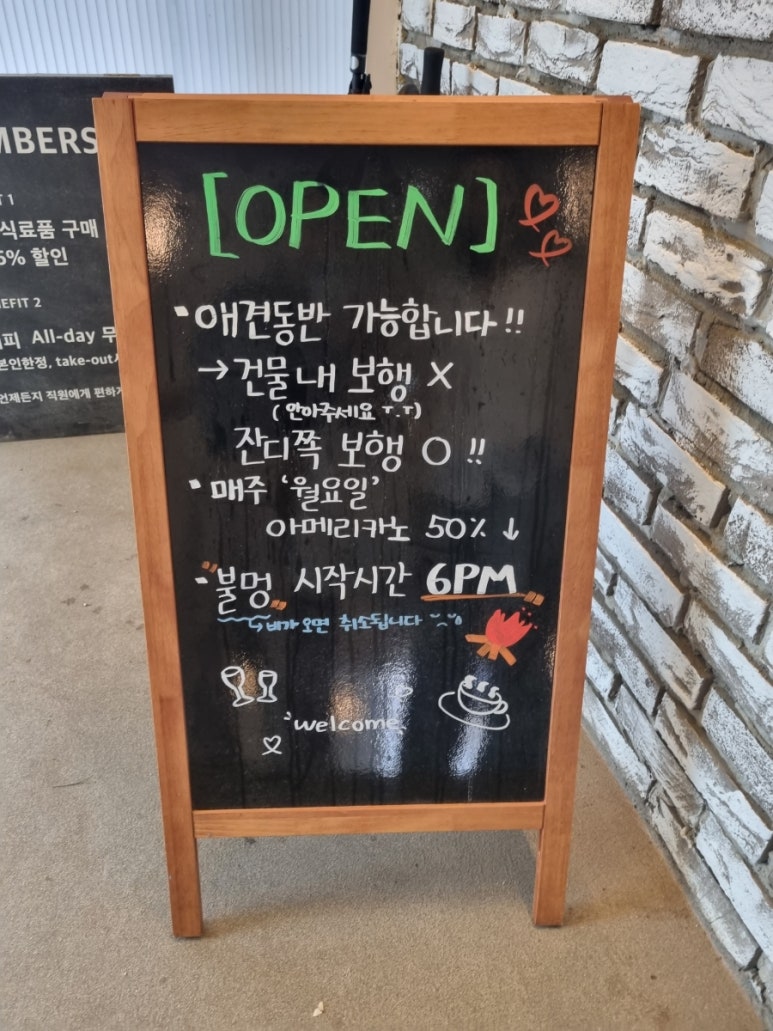 [OPEN]
• 애견동반 가능합니다!!
→ 건물내 보행 X
(안아주세요 T.T)
잔디쪽 보행 O !!
• 매주 '월요일'
아메리카노 50% ↓
• "불멍" 시작시간 6PM
↳ 비가오면 취소됩니다
welcome
MBERS
T 1
식료품 구매
5% 할인
EFIT 2
피 All-day 무
본인한정, take-out시
언제든지 직원에게 편하게